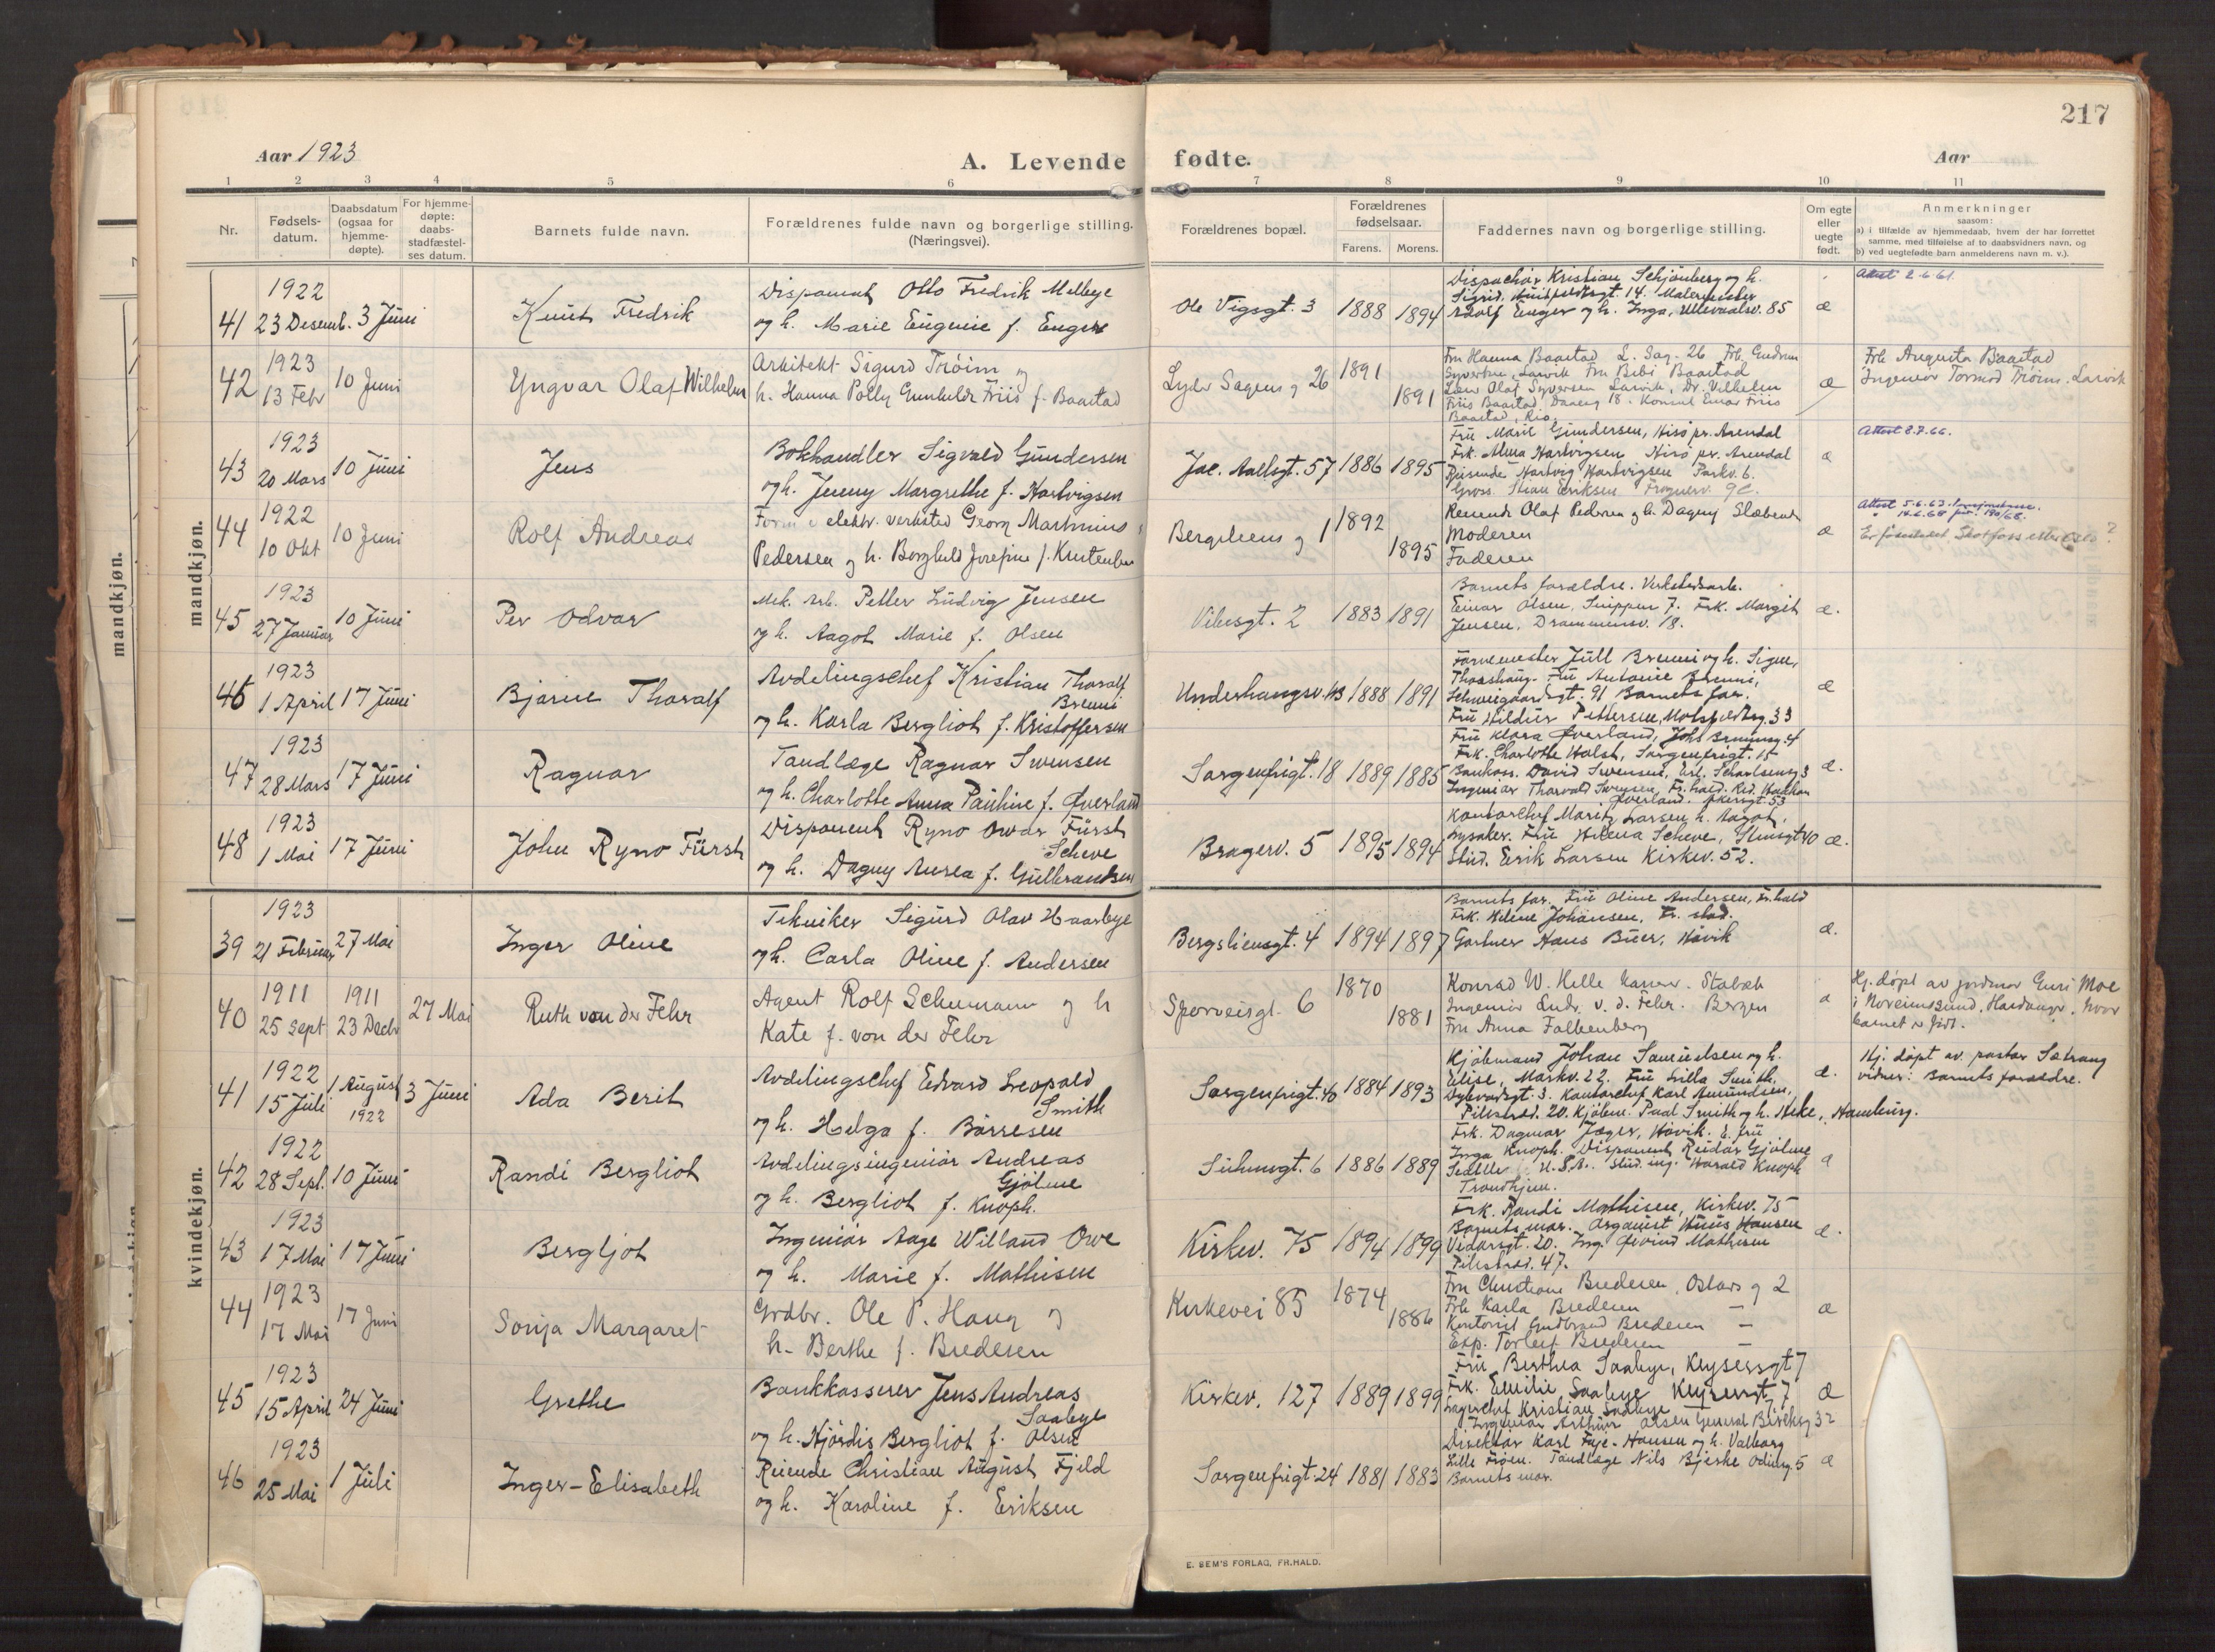 217
Aar 1923
A. Levende fødte.
Aar
1 2 3 4 5 6 7 8 9 10 11
Nr.
Fødsels-
datum.
Daabsdatum
(ogsaa for
hjemme-
døpte).
For hjemme-
døpte:
daabs-
stadfæstel-
ses datum.
Barnets fulde navn.
Forældrenes fulde navn og borgerlige stilling.
(Næringsvei).
Forældrenes bopæl.
Forældrenes
fødselsaar.
Farens. Morens.
Faddernes navn og borgerlige stilling.
Om egte
eller
uegte
født.
Anmerkninger
saasom:
a) i tilfælde av hjemmedaab, hvem der har forrettet
samme, med tilføielse af to daabsvidners navn, og
b) ved uegtefødte barn anmelderens navn m. v.).
mandkjøn.
mandkjøn.
1922
41 23 Desemb. 3 Juni
Knut Fredrik
Disponent Otto Fredrik Melbye
og h. Marie Eugenie f. Enger
Ole Vigsgt. 3 1888 1894
Dispachør Kristian Schjønberg og h.
Sigrid, Huitfeldtsgt. 14. Malermester
Adolf Enger og h. Inga, Ullevaalsv. 85
æ
Attest 2.6.61.
1923
42 13 Febr 10 Juni
Yngvar Olaf Wilhelm
Arkitekt Sigurd Trøim og
h. Hanna Polly Gunhilde Friis f. Baastad
Lyder Sagens g 26 1891 1891
Fru Hanna Baastad L. Sag. 26 Frk. Gudrun
Syvertsen, Larvik Fru Bibi Baastad
Olaf Syversen Larvik, Dr. Vilhelm
Friis Baastad, 18. Konsul Einar Friis
Baastad, Rio.
æ
Frk Augusta Baastad
Ingeniør Tormod Trøim. Larvik
1923
43 20 Mars 10 Juni
Jens
Bokhandler Sigvald Gundersen
og h. Jenny Margrethe f. Hartvigsen
Jac. Aallsgt. 57 1886 1895
Fru Marie Gundersen, Hisø pr. Arendal
Frk. Alma Hartvigsen Hisø pr. Arendal
Reisende Hartvig Hartvigsen Parkv. 6.
Gross. Stian Eriksen Frognerv. 9c.
æ
Attest 8.7.66.
1922
44 10 Okt 10 Juni
Rolf Andreas
elektr. verksted Georg Martinius
Pedersen og h. Borghild Josefine f. Kristensen
Bergsliens g 1 1892 1895
Reisende Olaf Pedersen og h. Dagny Slæbende
Moderen
Faderen
æ
Attest 5.6.63.
14.6.68 jnr. 190/68.
Er fødestedet Skotfoss eller Oslo?
1923
45 27 Januar 10 Juni
Per Odvar
Mek. Arb. Petter Ludvig Jensen
og h. Aagot Marie f. Olsen
Vibesgt. 2 1883 1891
Barnets forældre. Verkstedsarb.
Einar Olsen, Snippen 7. Frk. Margit
Jensen, Drammensv. 18.
æ.
1923
46 1 April 17 Juni
Bjarne Thoralf
Avdelingschef Kristian Thoralf
Brenni
og h. Karla Bergliot f. Kristoffersen
Underhaugsv. 13 1888 1891
Farvemester Jull Brenni og h. Signe,
Thorshaug. Fru Antonie Brenni,
Schweigaardsgt. 91 Barnets far.
Fru Hildur Pettersen, Motzfeldtsg. 33
æ
1923
47 28 Mars 17 Juni
Ragnar
Tandlæge Ragnar Svensen
og h. Charlotte Anna Pauline f. Øverland
Sorgenfrigt. 18 1889 1885
Fru Klara Øverland, Johs Bruunsg. 4
Frk. Charlotte Holst, Sorgenfrigt. 15
Bankass. David Svensen, Erl. 3
Ingeniør Thorvald Svensen, Fr.hald. Red. Haakon
Øverland. Akersgt. 53
æ.
1923
48 1 Mai 17 Juni
John Ryno Fürst
Disponent Ryno Owar Fürst
Scheve
og h. Dagny Aurea f. Gulbrandsen
Bragerv. 5 1895 1894
Kontorchef Moritz Larsen h. Aagot,
Lysaker. Fru Helena Scheve, 40
Stud. Erik Larsen Kirkev. 52.
æ.
kvindekjøn.
1923
39 21 Februar 27 Mai
Inger Oline
Tekniker Sigurd Olav Haarbye
og h. Carla Oline f. Andersen
Bergsliensgt. 4 1894 1897
Barnets far. Fru Oline Andersen, Fr.hald
Frk. Helene Johansen, Fr. stad.
Gartner Hans Büer, Høvik
æ.
1911 1911
40 25 Sept 23 Decbr 27 Mai
Ruth von der Fehr
Agent Rolf Schumann og h
Kate f. von der Fehr
Sporveisgt. 6 1870 1881
Konrad W. Helle Stabæk
Ingeniør Endr. v. d. Fehr. Bergen
Fru Anna Falkenberg
æ
Hj. døpt av jordmor Guri Moe
i Noreimssund, Hardanger, hvor
barnet er født.
1922 1 August
41 15 Juli 1922 3 Juni
Ada Berit
Avdelingschef Edvard Leopold
Smith
og h. Helga f. Børresen
Sorgenfrigt. 40 1884 1893
Kjøbmand Johan Samuelsen og h.
Elise, Markv. 22. Fru Lilla Smith,
Dybwadsgt. 3. Kontorchef Karl Amundsen,
Pilestræd. 20. Kjøbm. Paul Smith og h. Heke, Hamburg.
æ.
Hj. døpt av pastor Sætrang
vidner: Barnets forældre.
1922
42 28 Sept. 10 Juni
Randi Bergliot
Avdelingsingeniør Andreas
Gjølme
og h. Bergliot f. Knoph.
Suhmsgt. 6 1886 1889
Frk. Dagmar Jæger, Høvik. E. fru
Inga Knoph. Disponent Reidar Gjølme
Seattle U.S.A. Stud. ing. Harald Knoph
Trondhjem.
æ
1923
43 17 Mai 17 Juni
Bergljot
Ingeniør Aage Willand Owe
og h. Marie f. Mathisen
Kirkev. 75 1894 1899
Frk. Randi Mathisen, Kirkev. 75
Barnets mor. Organist Huus Hansen
Vidarsgt. 20. Ing. Øivind Mathisen
Pilestræd. 47.
æ.
1923
44 17 Mai 17 Juni
Sonja Margaret
Grdbr. Ole P. Haug og
h. Berthe f. Bredesen
Kirkevei 85 1874 1886
Fru Christiane Bredesen, Oslo g 2
Frk Karla Bredesen —
Kontorist Gudbrand Bredesen —
Exp. Torleif Bredesen —
æ
1923
45 15 April 24 Juni
Grethe
Bankkasserer Jens Andreas
Saabye
og h. Hjørdis Bergliot f. Olsen
Kirkev. 127 1889 1899
Fru Berthea Saabye, Keysersgt 7
Frk. Emilie Saabye Keysersgt. 7
Lagerchef Kristian Saabye 7
Ingeniør Arthur Olsen General Birchsg 32
æ
1923
46 25 Mai 1 Juli
Inger-Elisabeth
Reisende Christian August Fjeld
og h. Karoline f. Eriksen
Sorgenfrigt. 24 1881 1883
Direktør Karl Faje-Hansen og h. Valborg
Lille Frøen. Tandlæge Nils Bjerke Odinsg. 5
Barnets mor.
æ
E. SEM'S FORLAG, FR.HALD.